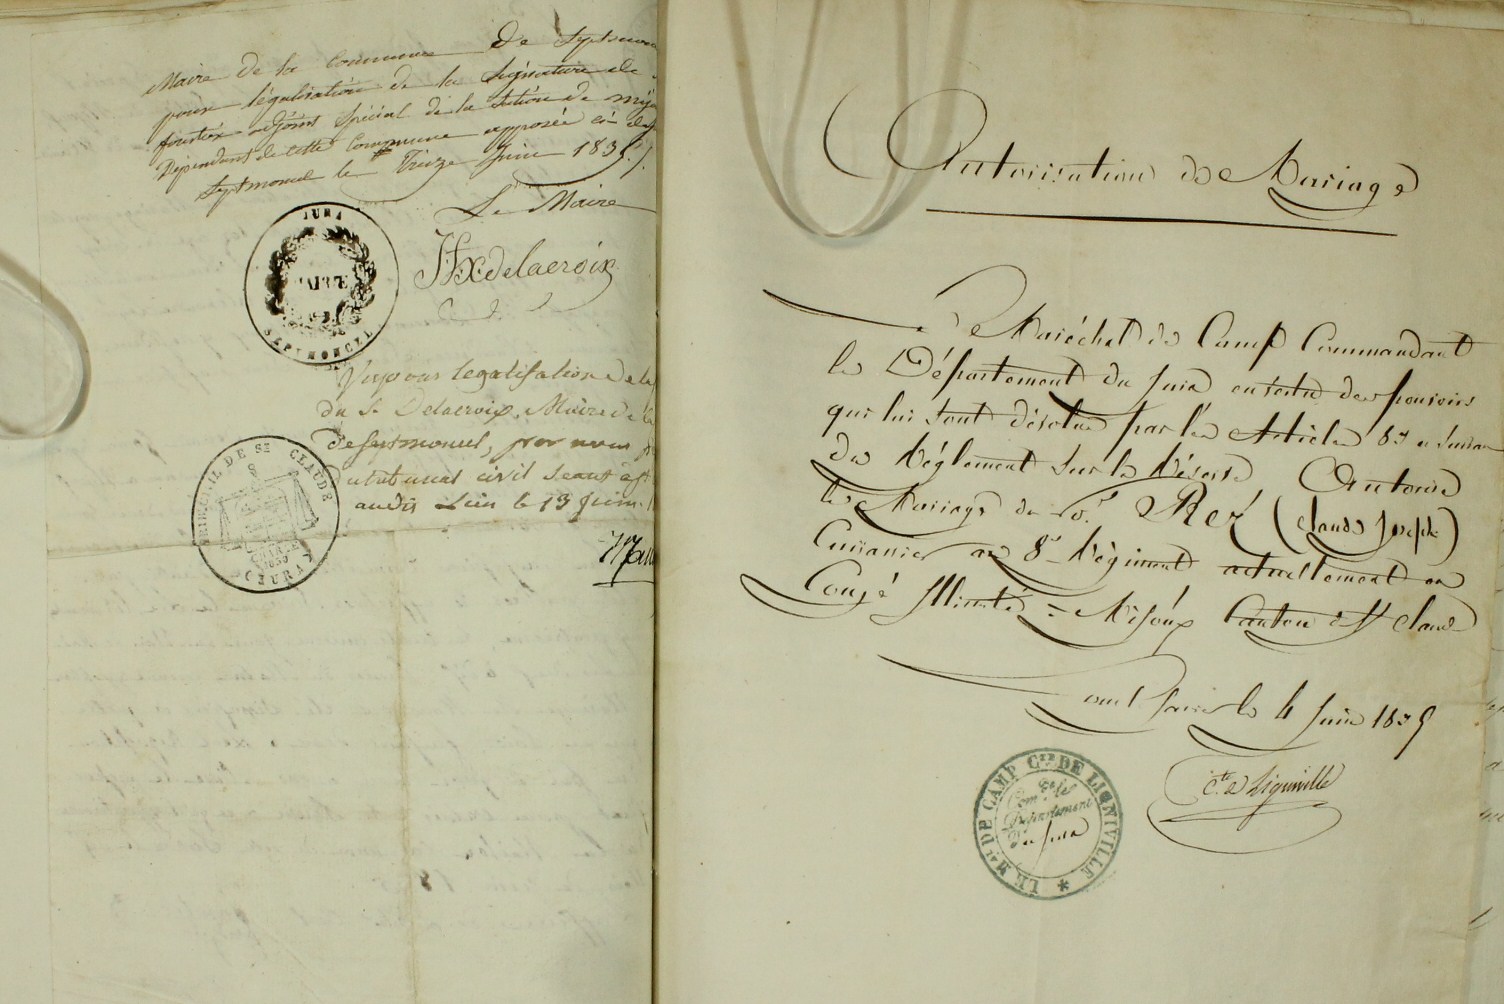 Maire de la Commune De Septmon
pour légalisation de la Signature de
fonction adjoint Spécial de la Section de mij
Dépendant de cette Commune apposée ci-de
Septmoncel le Treize Juin 1835 ./.
Le Maire
JURA
MAIRIE
SEPTMONCEL
Delacroix
Vu pour legalisation de la
du Sr. Delacroix, Maire de la
de Septmoncel, par nous
du tribunal civil Seant à St
audit Lieu le 13 Juin
TRIBUNAL DE ST. CLAUDE
(JURA)
Autorisation de Mariage
Le Maréchal de Camp Commandant
le Département du Jura en vertu des pouvoirs
qui lui sont dévolus par les Articles 83 et suivan
du Réglement sur la Réserve Autorise
le Mariage du Sr. Rey (Claude Joseph)
Cuirassier au 8e Régiment actuellement en
Congé Illimité à Mijoux Canton de St Claude
Lons le 4 Juin 1835
Cte. de Ligniville
LE Mal. DE CAMP Cte. DE LIGNIVILLE
Comdt. le
Département
du Jura